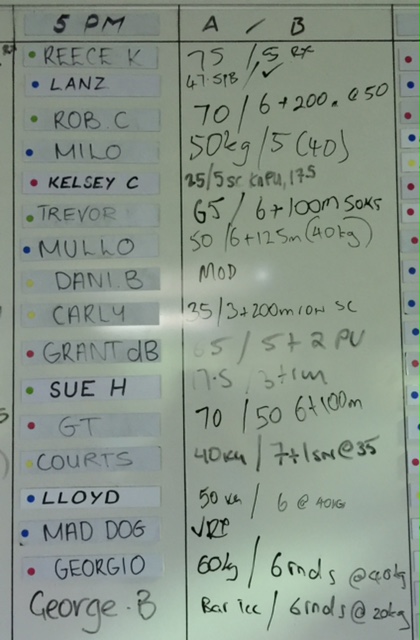 5 PM A / B
REECE K 75 / 5 RX
LANZ 47.5PB / ✓
ROB. C 70 / 6+200m @50
MILO 50kg / 5 (40)
KELSEY C 25/5 SC KnPU, 17.5
TREVOR 65 / 6+100m 50KG
MULLO 50 /6+125m (40kg)
DANI.B MOD
CARLY 35/3+200m row SC
GRANT dB 65 / 5+2 PU
SUE H 17.5 / 3+1m
GT 70 / 50 6+100m
COURTS 40kg / 7+1sn@35
LLOYD 50 kg / 6 @ 40KG
MAD DOG
GEORGIO 60kg / 6rnds @40kg
George.B Bar tec / 6rnds @ 20kg